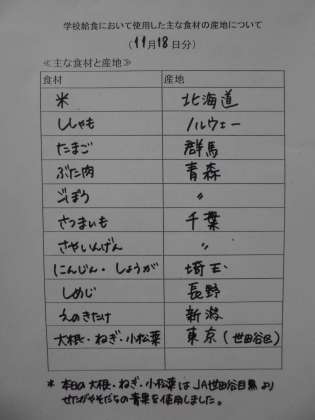 学校給食において使用した主な食材の産地について
(11月18日分)
≪主な食材と産地≫
食材 産地
米 北海道
ししゃも ノルウェー
たまご 群馬
ぶた肉 青森
ごぼう 〃
さつまいも 千葉
さやいんげん 〃
にんじん・しょうが 埼玉
しめじ 長野
えのきたけ 新潟
大根・ねぎ・小松菜 東京(世田谷区)
* 本日の大根・ねぎ・小松菜はJA世田谷目黒より
せたがやそだちの青果を使用しました。